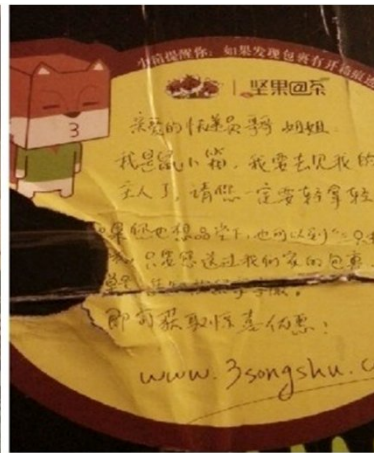 小箱提醒你：如果发现包裹有开箱痕迹
坚果回茶
亲爱的快递员哥哥 姐姐
我是鼠小箱，我要去见我的
主人了，请您一定要轻拿轻
如果您也想品尝下，也可以到"三只松
只要您送过我们家的包裹
即可获取惊喜优惠！
www.3songshu.c